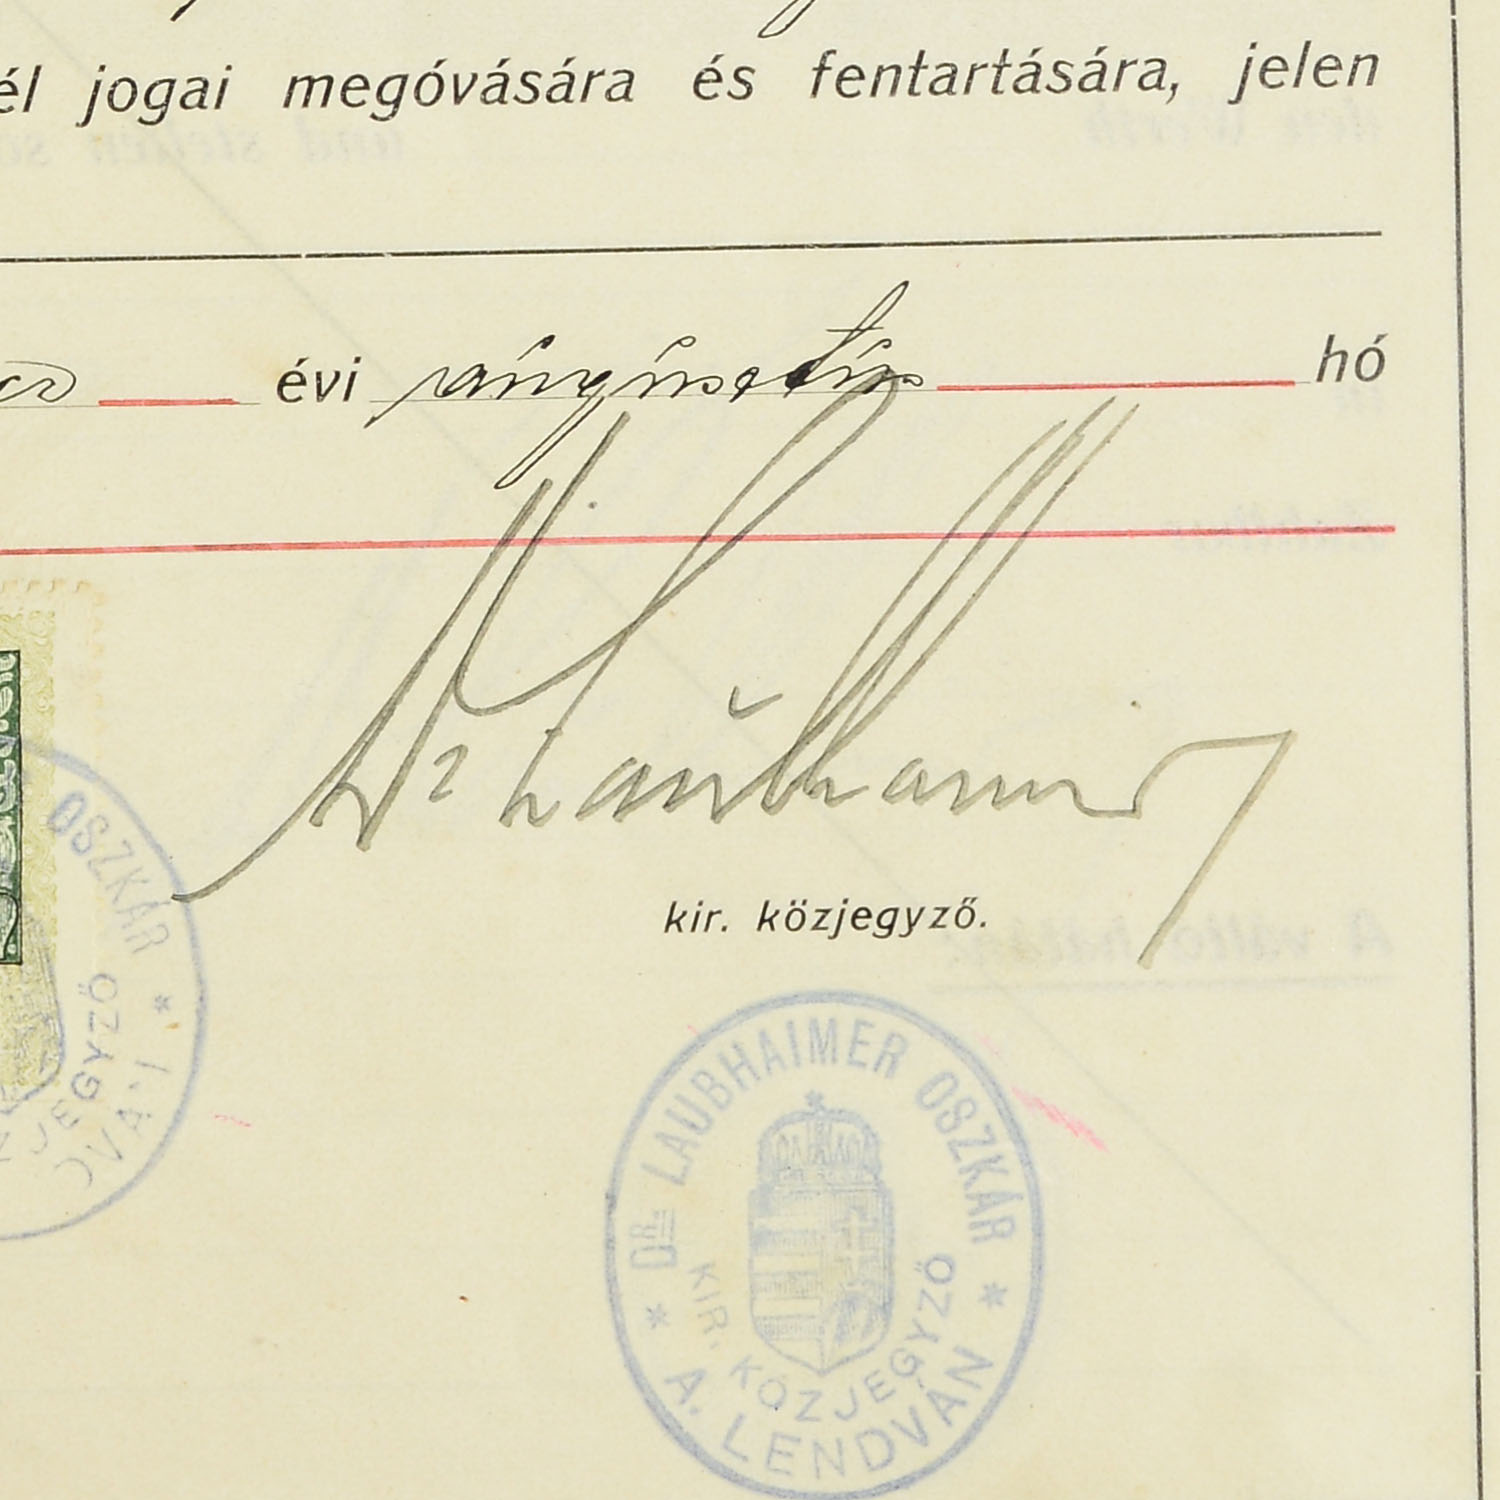 él jogai megóvására és fentartására, jelen
évi augusztus hó
Dr Laubhaimer
kir. közjegyző.
OSZKÁR *
JEGYZŐ
DR. LAUBHAIMER OSZKÁR
* KIR. KÖZJEGYZŐ *
A. LENDVÁN